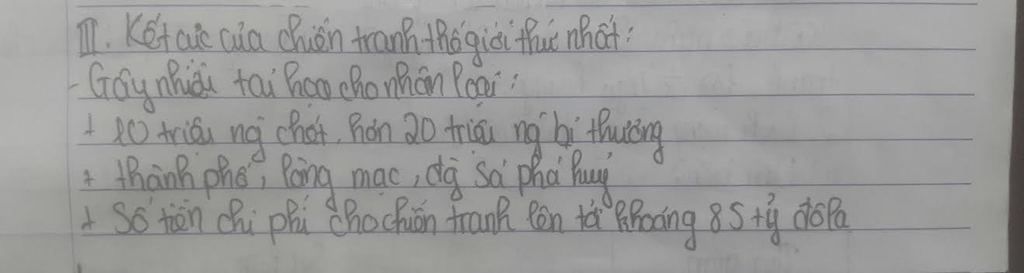 III. Kết cục của chiến tranh thế giới thứ nhất:
- Gây nhiều tai hoạ cho nhân loại:
+ 10 triệu ng chết, hơn 20 triệu ng bị thương
+ thành phố, làng mạc, đg sá phá huỷ
+ Số tiền chi phí cho chiến tranh lên tới khoảng 85 tỷ đôla